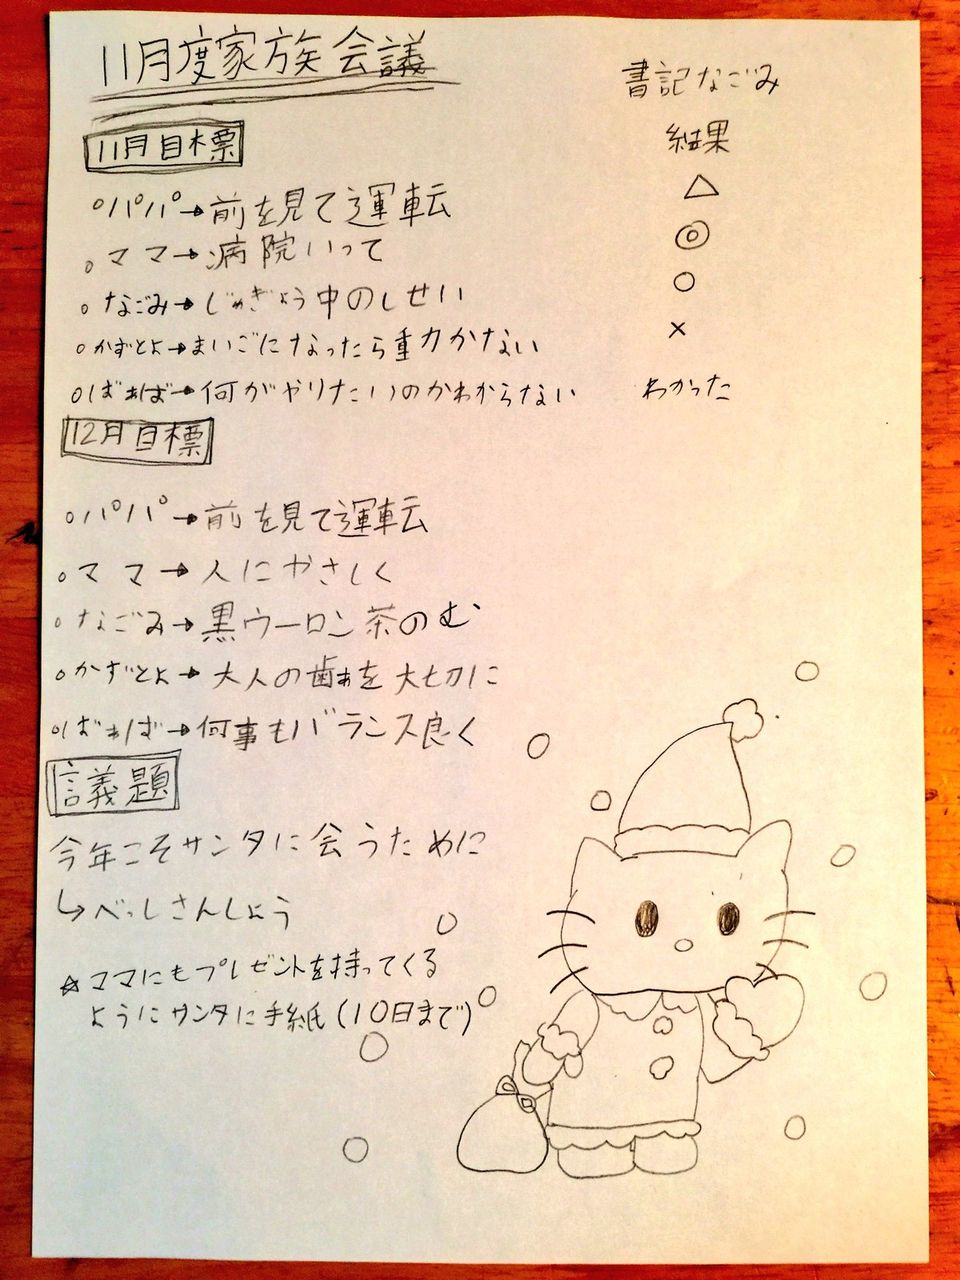 11月度家族会議
書記なごみ
11月目標
結果
○パパ→前を見て運転 △
○ママ→病院いって ◎
○なごみ→じゅぎょう中のしせい ○
○かずとよ→まいごになったら重力かない ×
○ばぁば→何がやりたいのかわからない わかった
12月目標
○パパ→前を見て運転
○ママ→人にやさしく
○なごみ→黒ウーロン茶のむ
○かずとよ→大人の歯ぁを大切に
○ばぁば→何事もバランス良く
議題
今年こそサンタに会うために
↳べっしさんしょう
☆ママにもプレゼントを持ってくる
ようにサンタに手紙(10日まで)